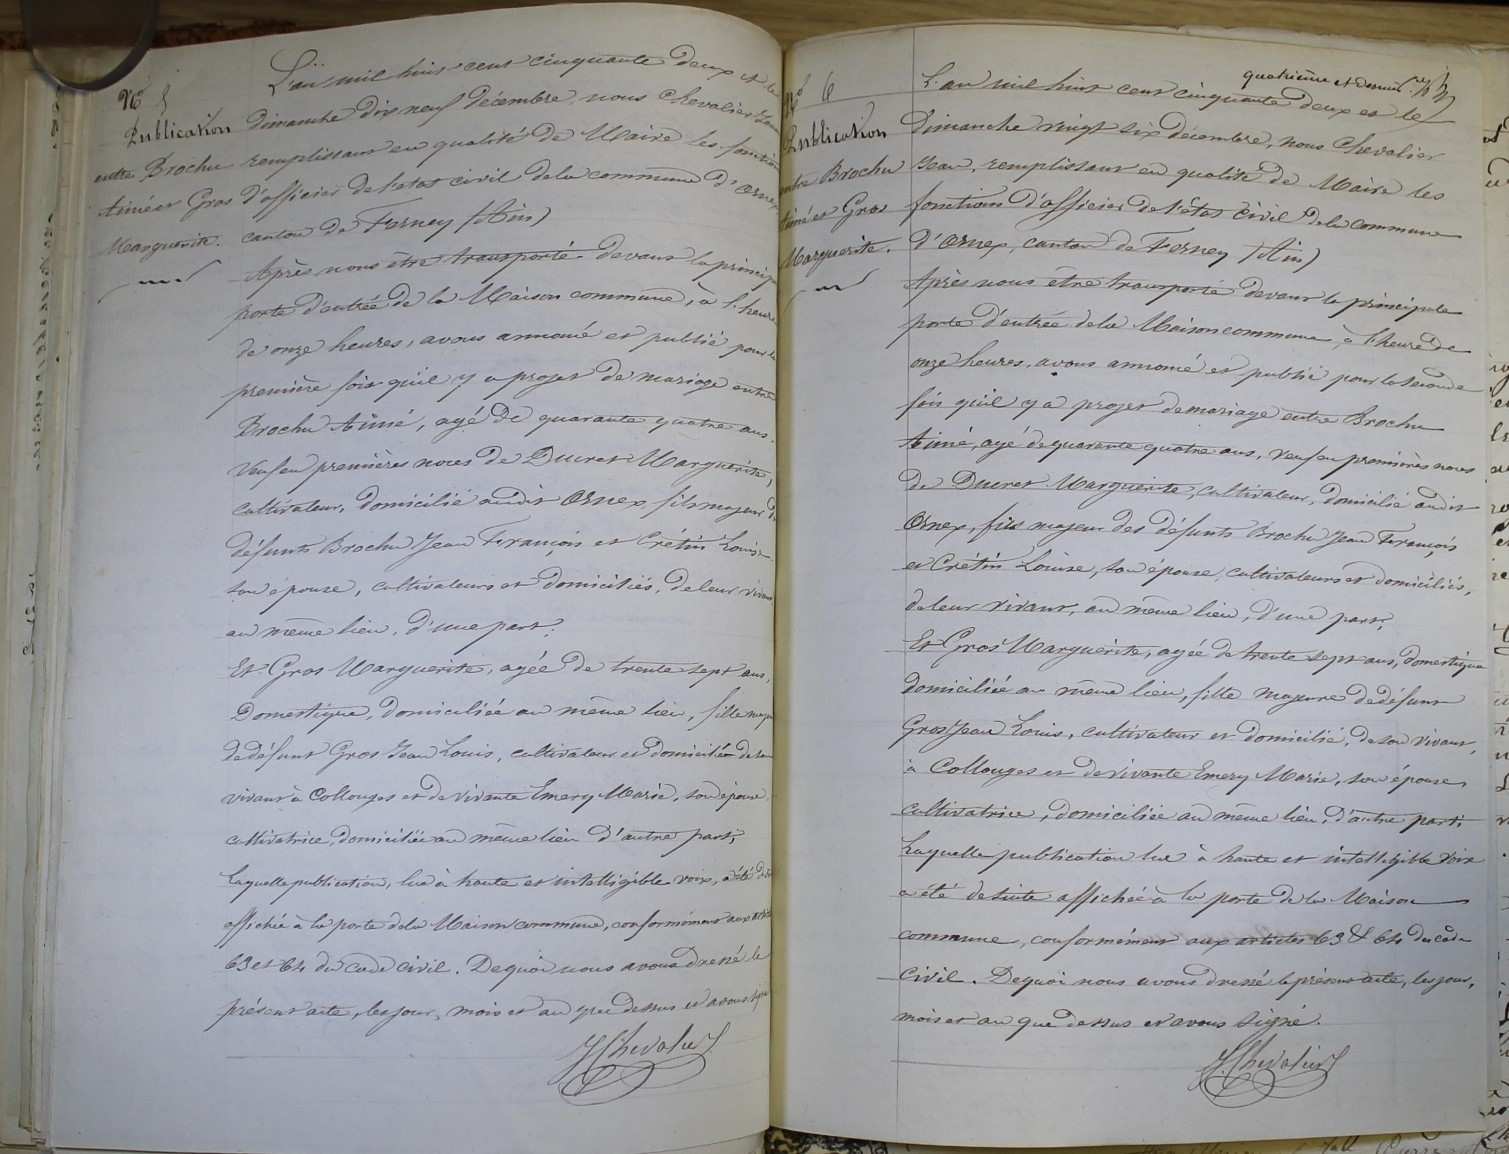 N° 5
Publication
entre Brochu
Aimé et Gros
Marguerite.
L'an mil huit cent cinquante deux et le
Dimanche dix neuf décembre, nous Chevalier Jean
remplissant en qualité de Maire les fonctions
d'officier de l'état civil de la commune d'Ornex
canton de Ferney (Ain)
Après nous être transporté devant la principale
porte d'entrée de la Maison commune, à l'heure
de onze heures, avons annoncé et publié pour la
première fois qu'il y a projet de mariage entre
Brochu Aimé, agé de quarante quatre ans,
Veuf en premières noces de Ducret Marguerite,
cultivateur, domicilié audit Ornex fils majeur des
défunts Brochu Jean François et Crétin Louise
son épouse, cultivateurs et domiciliés, de leur vivant
au même lieu, d'une part;
Et Gros Marguerite, agée de trente sept ans,
Domestique, domiciliée au même lieu, fille majeure
de défunt Gros Jean Louis, cultivateur et domicilié de son
vivant à Collonges et de vivante Emery Marie, son épouse
cultivatrice, domiciliée au même lieu d'autre part;
Laquelle publication, lue à haute et intelligible voix, a été de suite
affichée à la porte de la Maison commune, conformément aux articles
63 et 64 du code civil. De quoi nous avons dressé le
présent acte, les jour, mois et an que dessus et avons signé
J. Chevalier
quatrième et dernier
N° 6
Publication
entre Brochu
Aimé et Gros
Marguerite.
L'an mil huit cent cinquante deux et le
Dimanche vingt six décembre, nous Chevalier
Jean, remplissant en qualité de Maire les
fonctions d'officier de l'état civil de la commune
d'Ornex, canton de Ferney (Ain)
Après nous être transporté devant la principale
porte d'entrée de la Maison commune, à l'heure de
onze heures, avons annoncé et publié pour la seconde
fois qu'il y a projet de mariage entre Brochu
Aimé, agé de quarante quatre ans, veuf en premières noces
de Ducret Marguerite, cultivateur, domicilié audit
Ornex, fils majeur des défunts Brochu Jean François
et Crétin Louise, son épouse, cultivateurs et domiciliés,
de leur vivant, au même lieu, d'une part;
Et Gros Marguerite, agée de trente sept ans, domestique
domiciliée au même lieu, fille majeure de défunt
Gros Jean Louis, cultivateur et domicilié, de son vivant,
à Collonges et de vivante Emery Marie, son épouse
cultivatrice, domiciliée au même lieu, d'autre part;
Laquelle publication lue à haute et intelligible voix
a été de suite affichée à la porte de la Maison
commune, conformément aux articles 63 & 64 du code
civil. De quoi nous avons dressé le présent acte, les jour,
mois et an que dessus et avons signé.
J. Chevalier